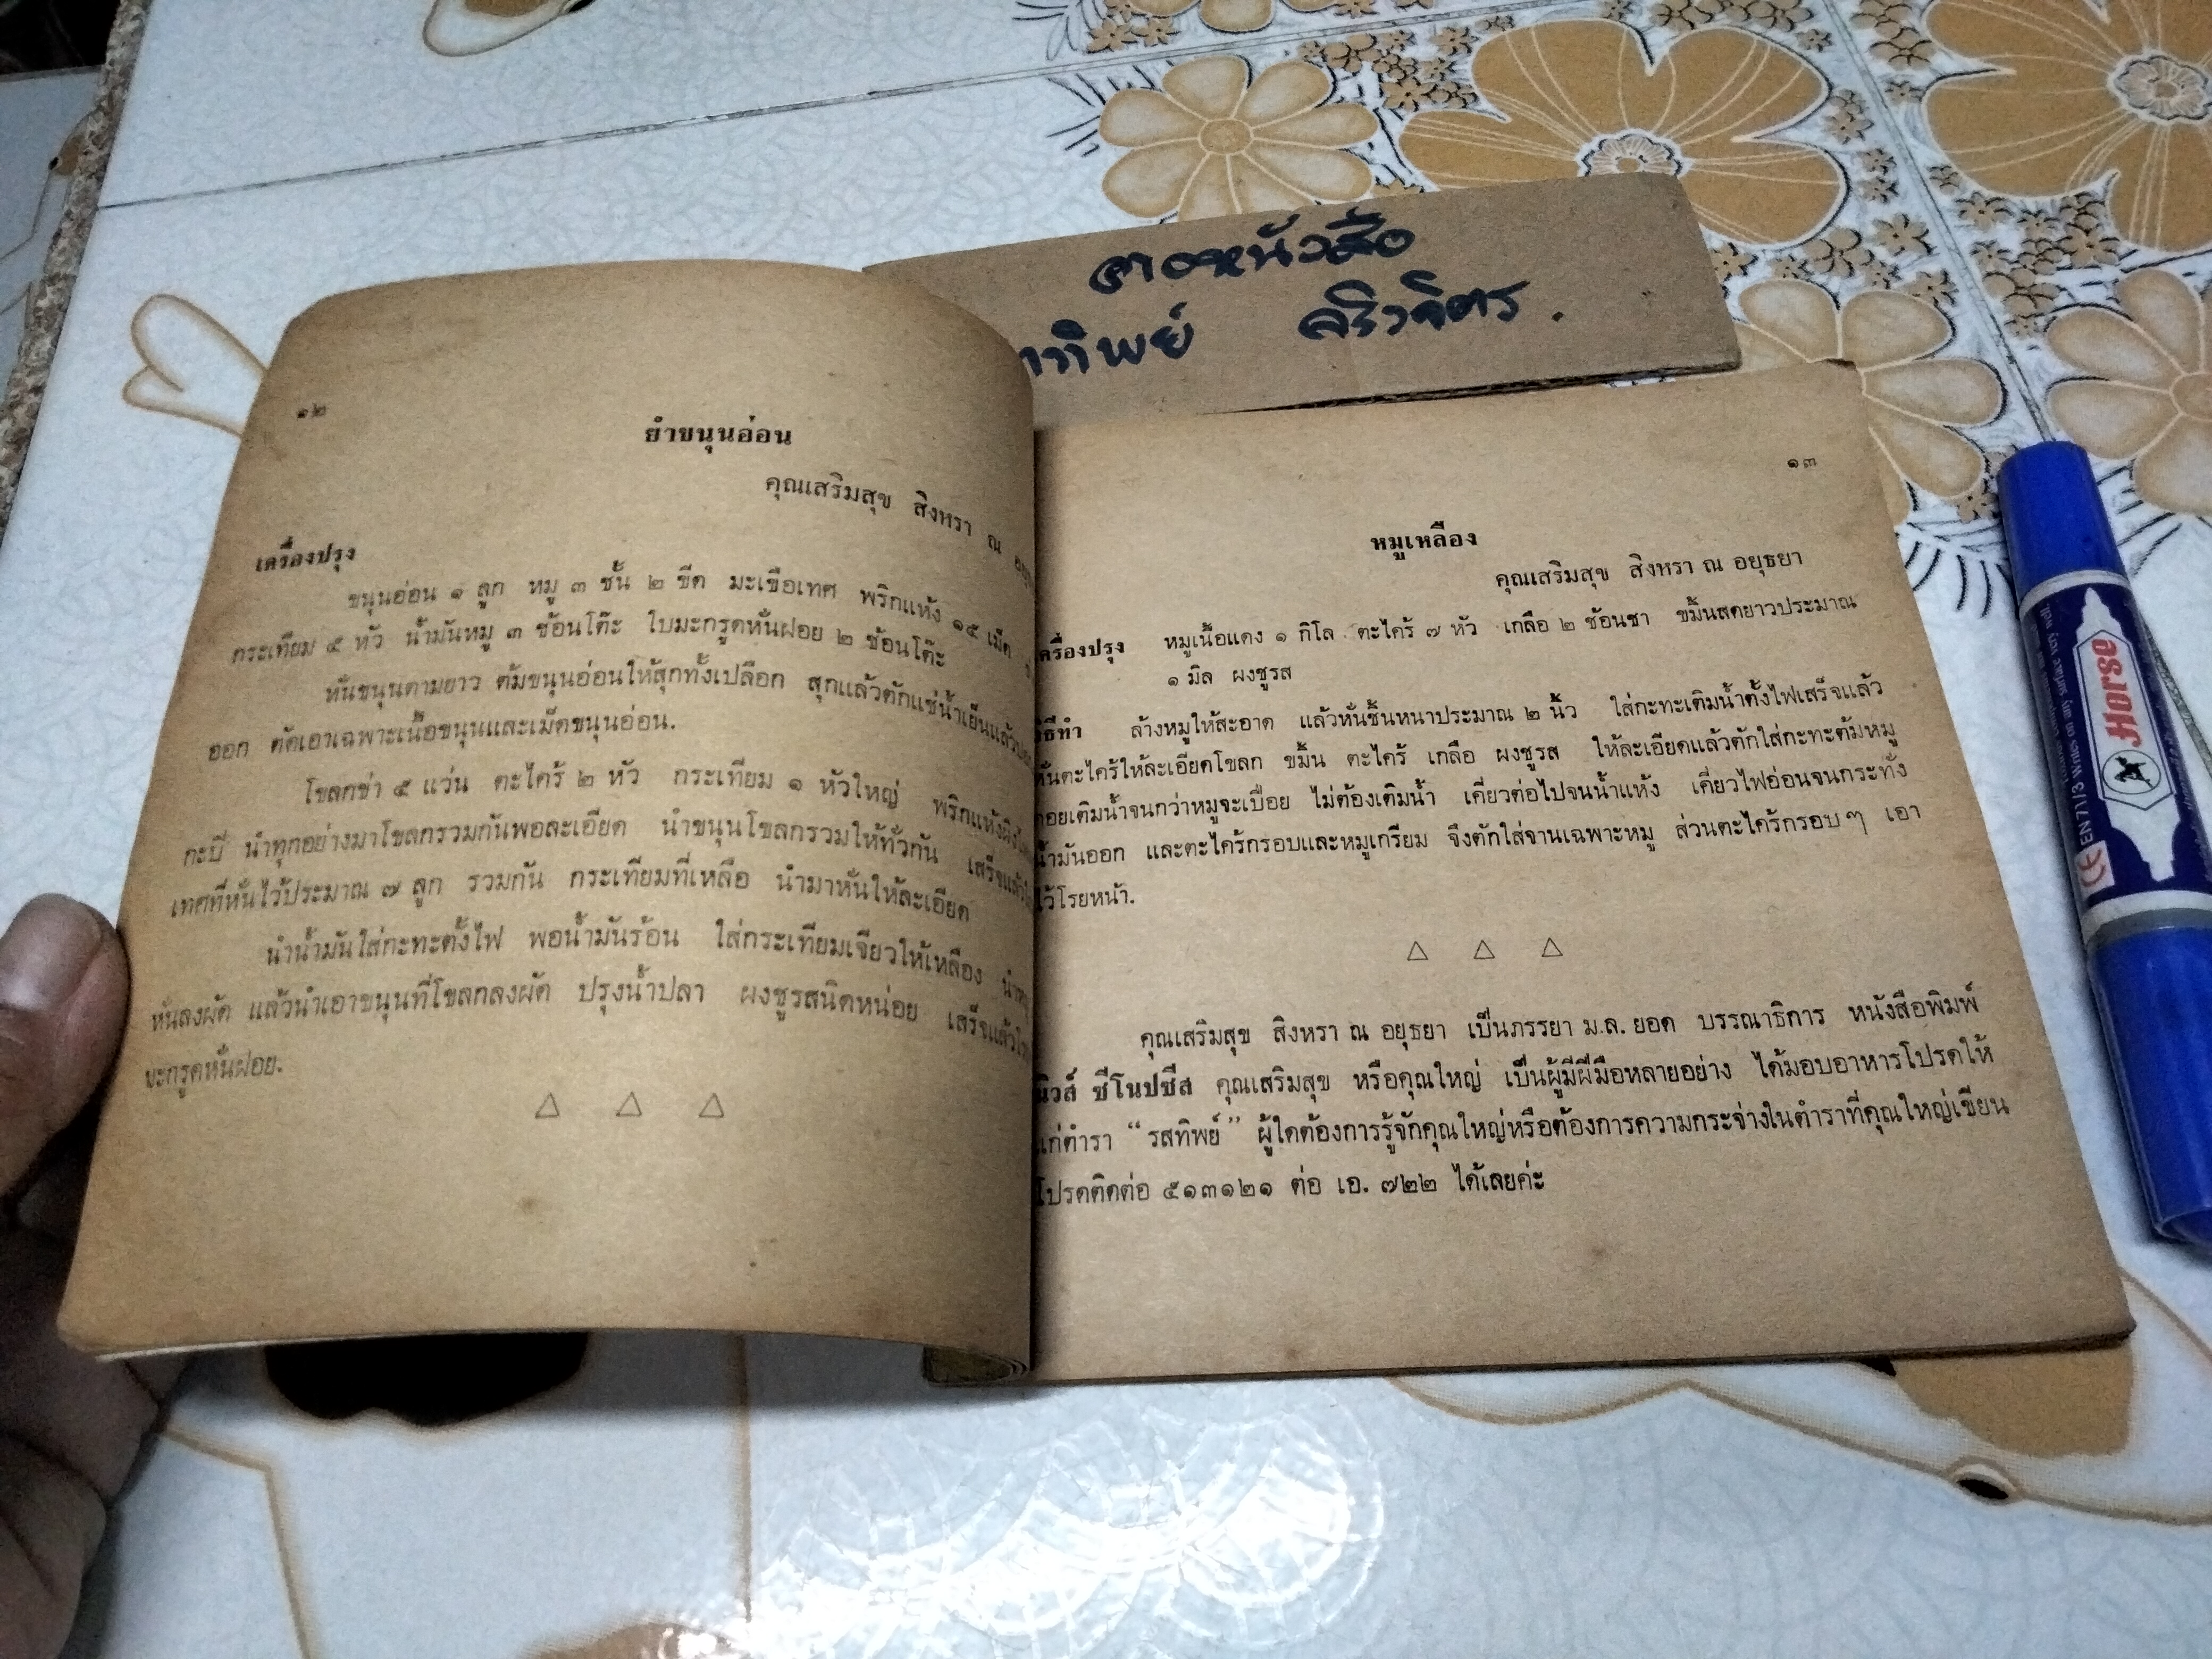 ๑๒
ยำขนุนอ่อน
คุณเสริมสุข สิงหรา ณ
เครื่องปรุง
ขนุนอ่อน ๑ ลูก หมู ๓ ชั้น ๒ ขีด มะเขือเทศ พริกแห้ง ๑๕ เม็ด
กระเทียม ๕ หัว น้ำมันหมู ๓ ช้อนโต๊ะ ใบมะกรูดหั่นฝอย ๒ ช้อนโต๊ะ
หั่นขนุนตามยาว ต้มขนุนอ่อนให้สุกทั้งเปลือก สุกแล้วตักแช่น้ำเย็นแล้ว
ออก ตัดเอาเฉพาะเนื้อขนุนและเม็ดขนุนอ่อน.
โขลกข่า ๕ แว่น ตะไคร้ ๒ หัว กระเทียม ๑ หัวใหญ่ พริกแห้ง
กะปิ นำทุกอย่างมาโขลกรวมกันพอละเอียด นำขนุนโขลกรวมให้ทั่วกัน เสร็จแล้ว
เทศที่หั่นไว้ประมาณ ๗ ลูก รวมกัน กระเทียมที่เหลือ นำมาหั่นให้ละเอียด
นำน้ำมันใส่กะทะตั้งไฟ พอน้ำมันร้อน ใส่กระเทียมเจียวให้เหลือง
หั่นลงผัด แล้วนำเอาขนุนที่โขลกลงผัด ปรุงน้ำปลา ผงชูรสนิดหน่อย เสร็จแล้ว
มะกรูดหั่นฝอย.
△ △ △
หนังสือ
ทิพย์
๑๓
หมูเหลือง
คุณเสริมสุข สิงหรา ณ อยุธยา
ครื่องปรุง หมูเนื้อแดง ๑ กิโล ตะไคร้ ๗ หัว เกลือ ๒ ช้อนชา ขมิ้นสดยาวประมาณ
๑ มิล ผงชูรส
วิธีทำ ล้างหมูให้สะอาด แล้วหั่นชิ้นหนาประมาณ ๒ นิ้ว ใส่กะทะเติมน้ำตั้งไฟเสร็จแล้ว
หั่นตะไคร้ให้ละเอียดโขลก ขมิ้น ตะไคร้ เกลือ ผงชูรส ให้ละเอียดแล้วตักใส่กะทะต้มหมู
คอยเติมน้ำจนกว่าหมูจะเปื่อย ไม่ต้องเติมน้ำ เคี่ยวต่อไปจนน้ำแห้ง เคี่ยวไฟอ่อนจนกระทั่ง
น้ำมันออก และตะไคร้กรอบและหมูเกรียม จึงตักใส่จานเฉพาะหมู ส่วนตะไคร้กรอบ ๆ เอา
ไว้โรยหน้า.
△ △ △
คุณเสริมสุข สิงหรา ณ อยุธยา เป็นภรรยา ม.ล. ยอด บรรณาธิการ หนังสือพิมพ์
นิวส์ ซีโนปซีส คุณเสริมสุข หรือคุณใหญ่ เป็นผู้มีฝีมือหลายอย่าง ได้มอบอาหารโปรดให้
แก่ตำรา “รสทิพย์” ผู้ใดต้องการรู้จักคุณใหญ่หรือต้องการความกระจ่างในตำราที่คุณใหญ่เขียน
โปรดติดต่อ ๕๑๓๑๒๑ ต่อ เอ. ๗๒๒ ได้เลยค่ะ
Horse
CE EN 71/3